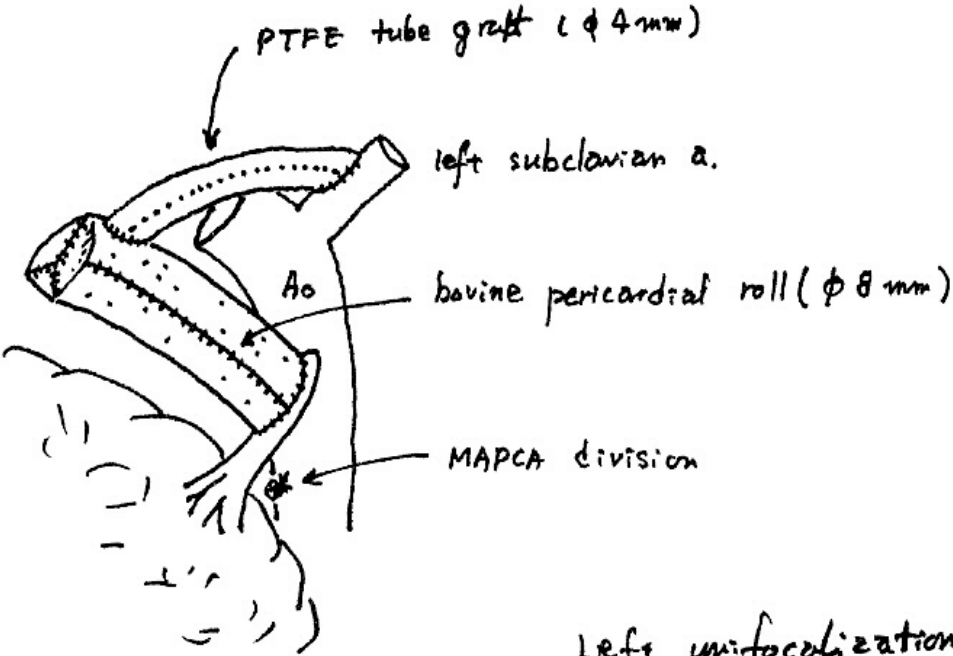 PTFE tube graft (ϕ 4 mm)
left subclavian a.
Ao
bovine pericardial roll (ϕ 8 mm)
MAPCA division
Left unifocalization